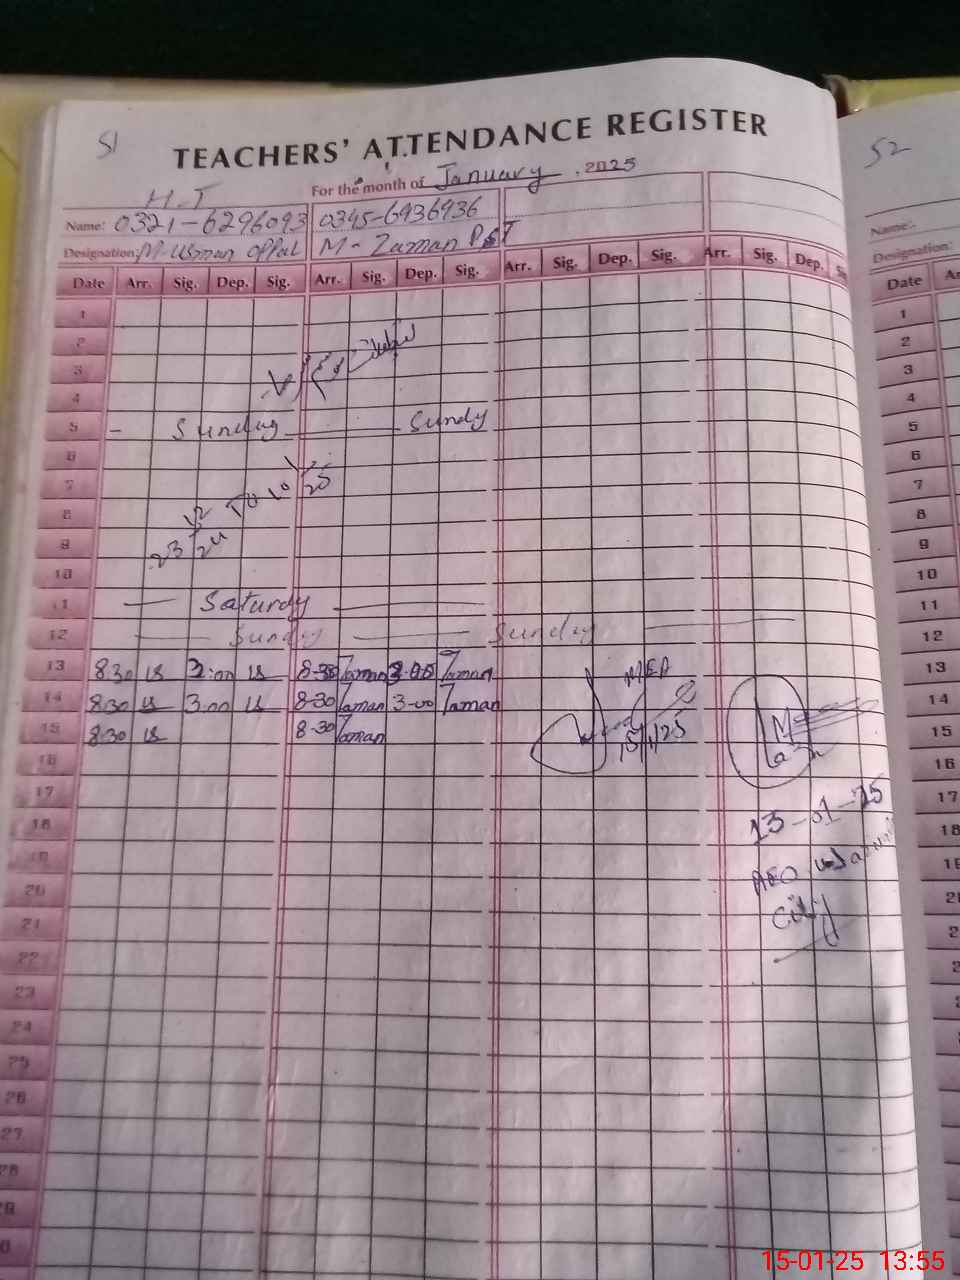 51
TEACHERS' ATTENDANCE REGISTER
For the month of January, 2025
H.T
Name: 0321-6296093 0345-6936936
Designation: M-Usman Oppal M-Zaman PST
Date Arr. Sig. Dep. Sig. Arr. Sig. Dep. Sig. Arr. Sig. Dep. Sig. Arr. Sig. Dep. Si
1
2
3
4
5 - Sunday Sundy
6
7
8
9
23/12/24 To 10/1/25
10
11 Saturdy
12 Sundy Sunday
13 8:30 us 3:00 us 8-30 Zaman 3-00 Zaman
14 8:30 us 3:00 us 8-30 Zaman 3-00 Zaman
15 8:30 us 8-30 Zaman
MEA
15/1/25
16
17
13-01-25
18
19
AEO
20
21
22
23
24
25
26
27
28
29
0
52
Name:
Designation:
Date Ar
1
2
3
4
5
6
7
8
9
10
11
12
13
14
15
16
17
18
19
2
2
2
15-01-25 13:55